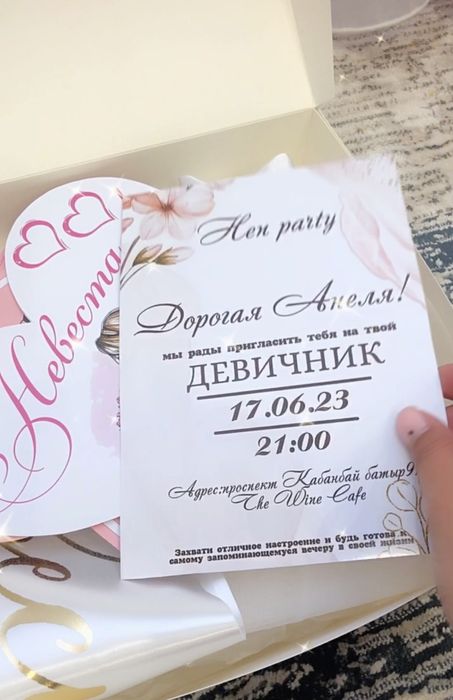 Невеста
Hen party
Дорогая Анеля!
мы рады пригласить тебя на твой
ДЕВИЧНИК
17.06.23
21:00
Адрес:проспект Кабанбай батыр9
The Wine Cafe
Захвати отличное настроение и будь готова к
самому запоминающемуся вечеру в своей жизни